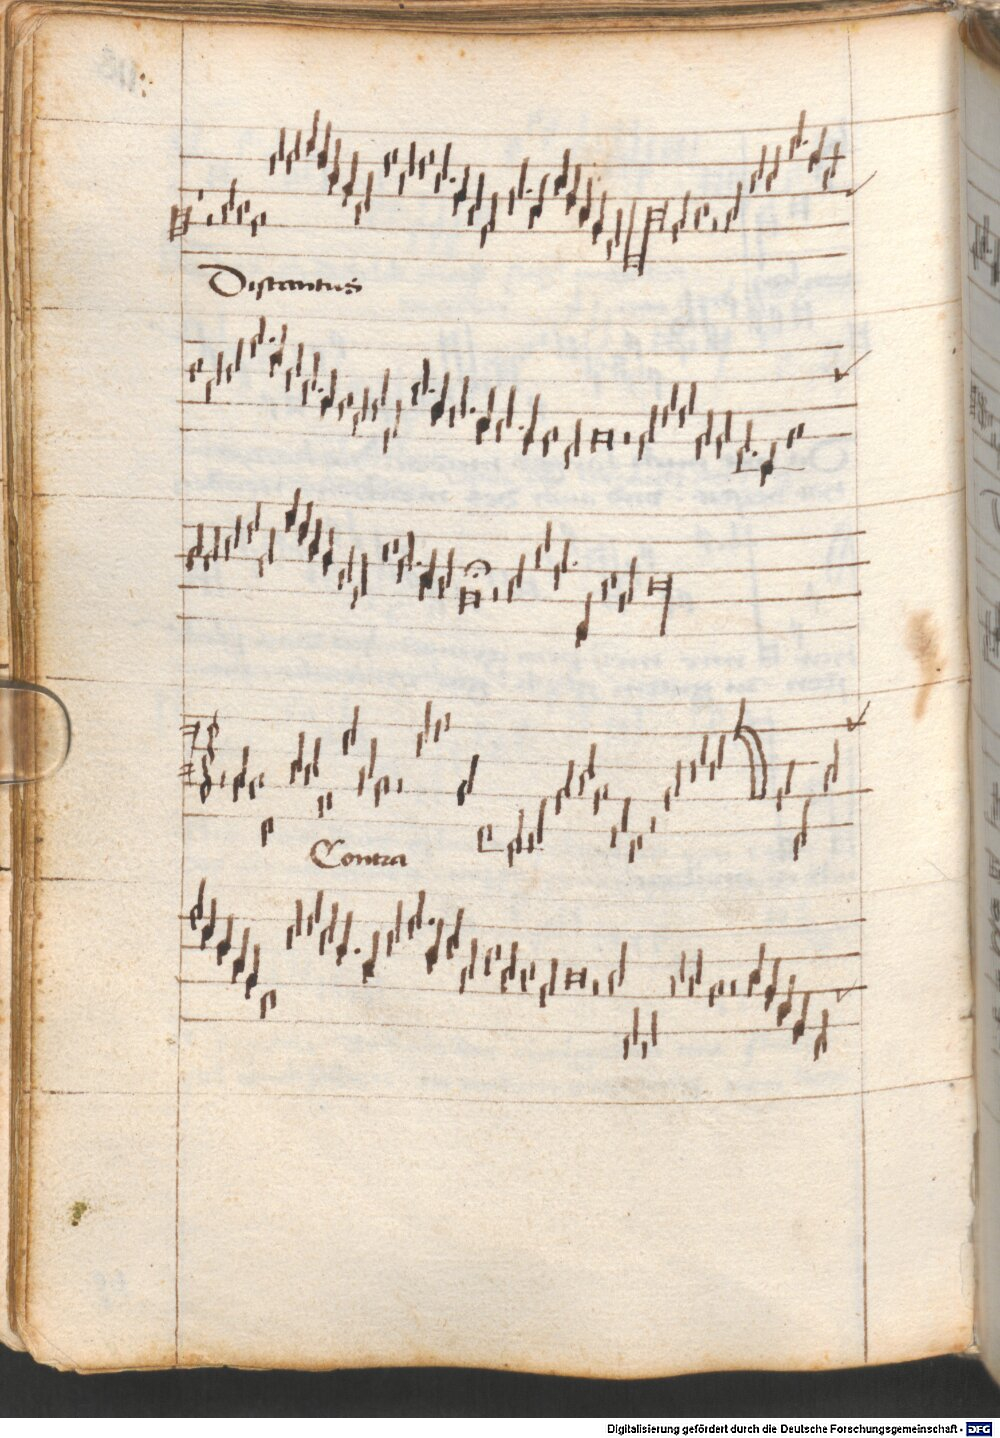 Discantus
Contra
Digitalisierung gefördert durch die Deutsche Forschungsgemeinschaft - DFG